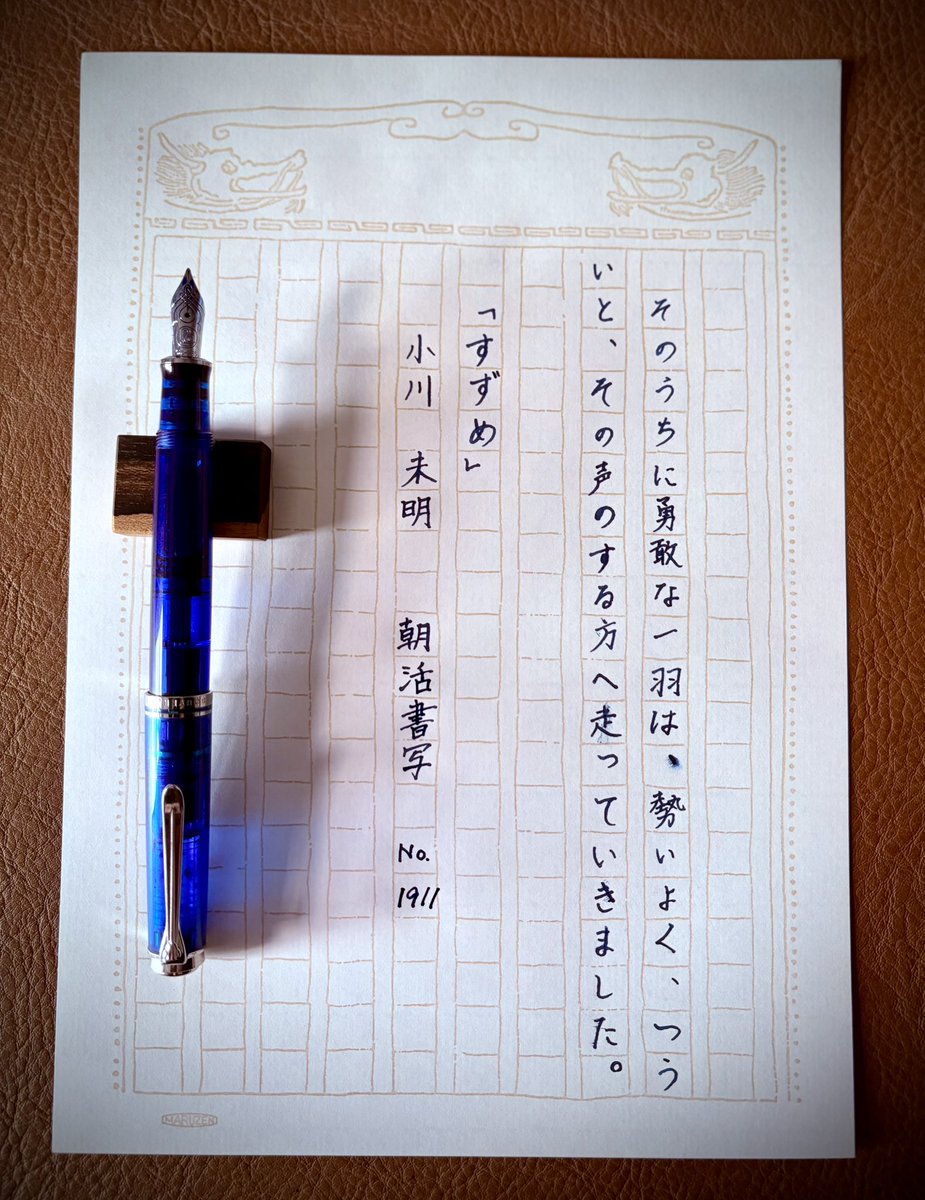 そのうちに勇敢な一羽は、勢いよく、つう
いと、その声のする方へ走っていきました。
「すずめ」
小川 未明 朝活書写 No. 1911
MARUZEN